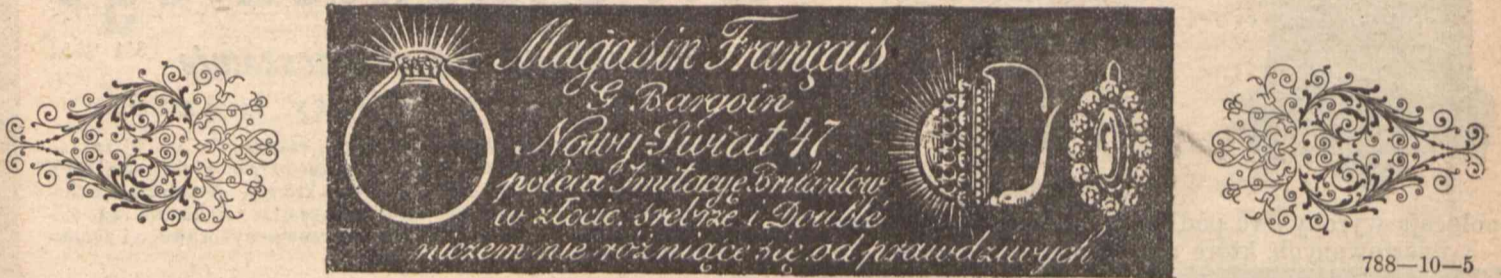 Magasin Français
G. Bargoin
Nowy-Świat 47.
poleca Imitacyę Brilantów
w złocie, srebrze i Doublé
niczem nie różniące się od prawdziwych
788—10—5